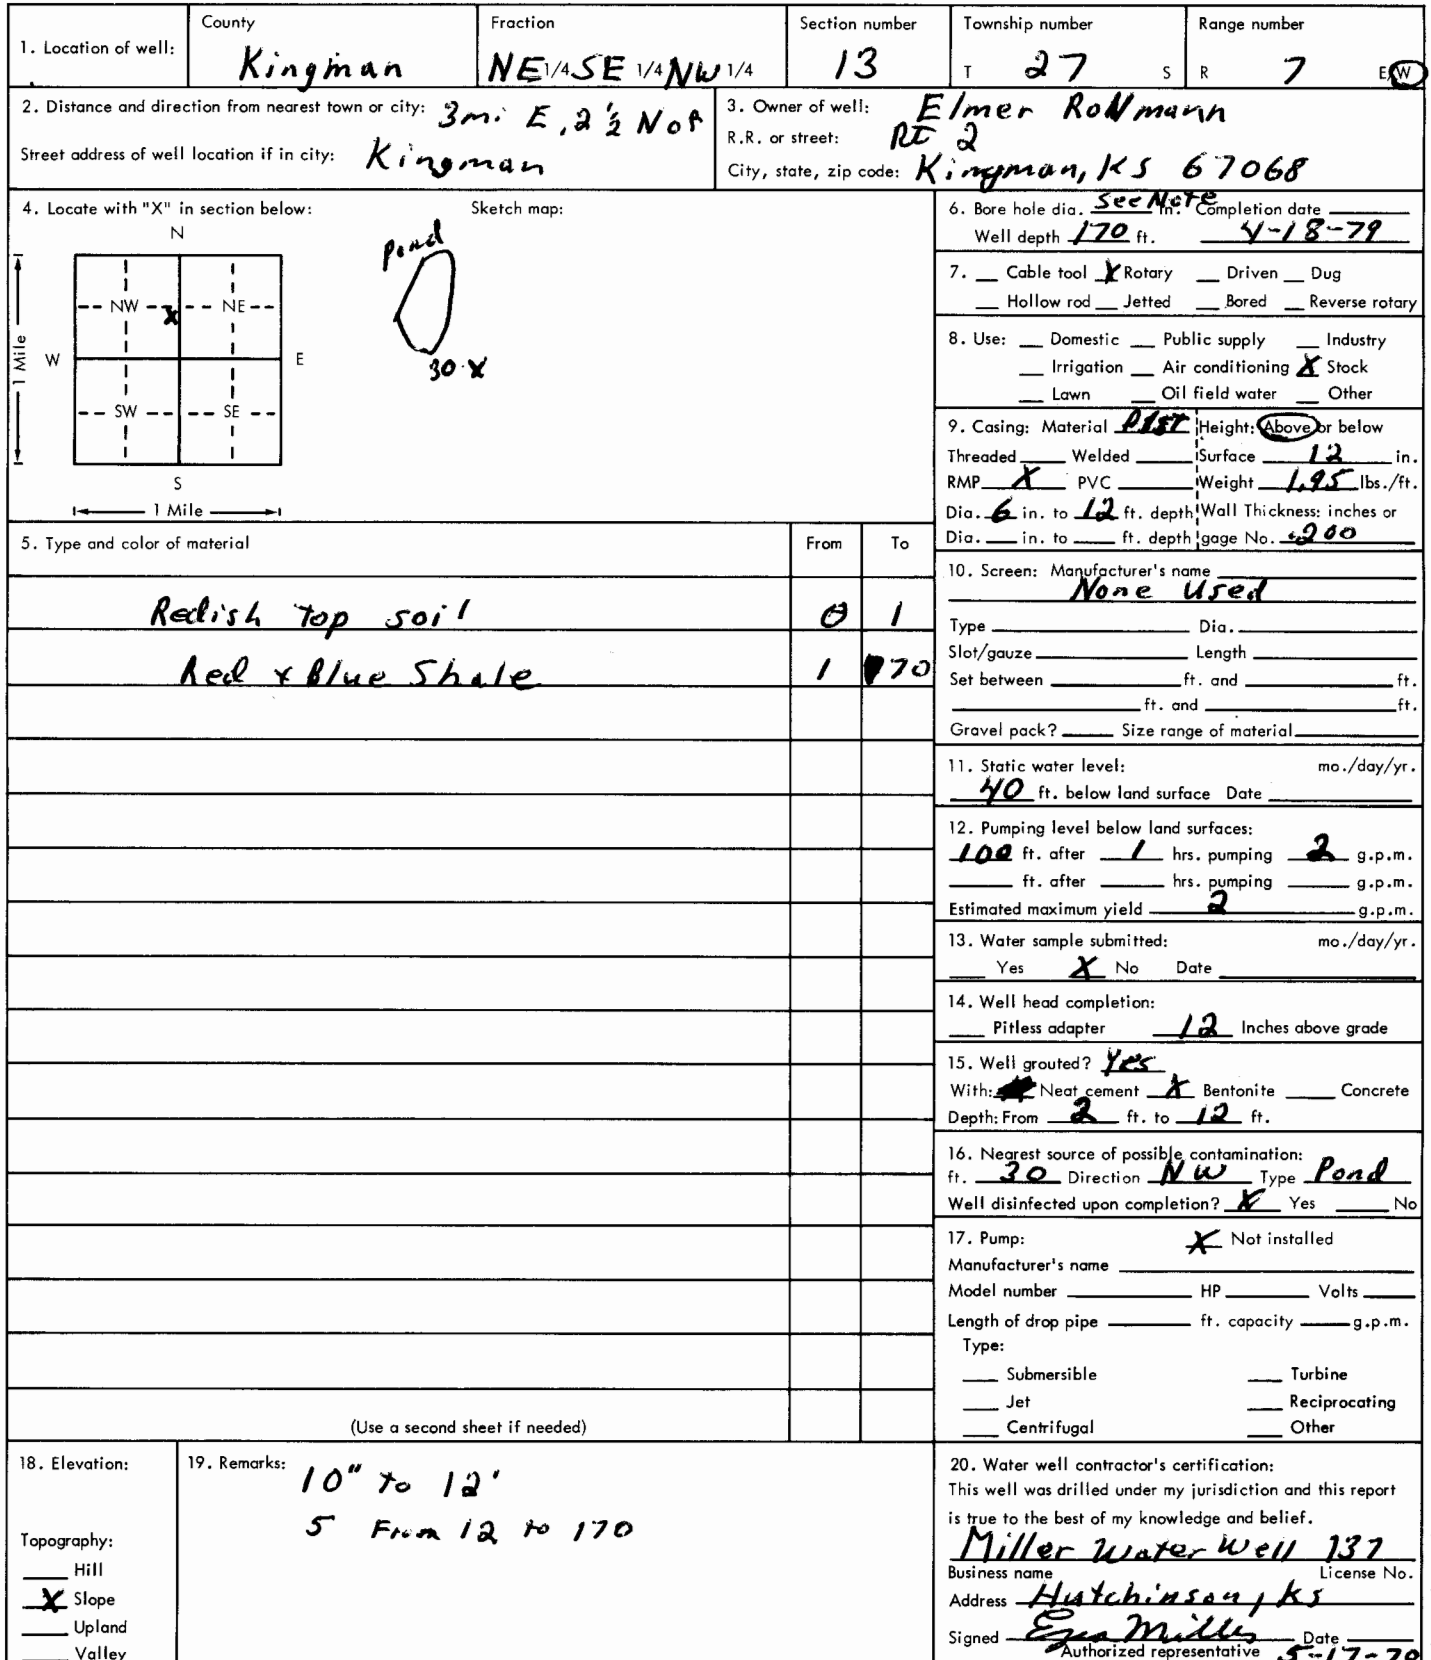 County Fraction Section number Township number Range number
1. Location of well: Kingman NE 1/4 SE 1/4 NW 1/4 13 T 27 S R 7 E W
2. Distance and direction from nearest town or city: 3mi E, 2 1/2 N of
Street address of well location if in city: Kingman
3. Owner of well: Elmer Rollmann
R.R. or street: Rt 2
City, state, zip code: Kingman, KS 67068
4. Locate with "X" in section below: Sketch map:
N
Pond
NW X NE
W E
30 X
1 Mile
SW SE
S
1 Mile
5. Type and color of material From To
Redish top soil 0 1
Red & Blue Shale 1 170
(Use a second sheet if needed)
6. Bore hole dia. See Note in. Completion date
Well depth 170 ft. 4-18-79
7. Cable tool X Rotary Driven Dug
Hollow rod Jetted Bored Reverse rotary
8. Use: Domestic Public supply Industry
Irrigation Air conditioning X Stock
Lawn Oil field water Other
9. Casing: Material Plst Height: Above or below
Threaded Welded Surface 12 in.
RMP X PVC Weight 1.95 lbs./ft.
Dia. 6 in. to 12 ft. depth Wall Thickness: inches or
Dia. in. to ft. depth gage No. .200
10. Screen: Manufacturer's name
None Used
Type Dia.
Slot/gauze Length
Set between ft. and ft.
ft. and ft.
Gravel pack? Size range of material
11. Static water level: mo./day/yr.
40 ft. below land surface Date
12. Pumping level below land surfaces:
100 ft. after 1 hrs. pumping 2 g.p.m.
ft. after hrs. pumping g.p.m.
Estimated maximum yield 2 g.p.m.
13. Water sample submitted: mo./day/yr.
Yes X No Date
14. Well head completion:
Pitless adapter 12 Inches above grade
15. Well grouted? Yes
With: Neat cement X Bentonite Concrete
Depth: From 2 ft. to 12 ft.
16. Nearest source of possible contamination:
ft. 30 Direction NW Type Pond
Well disinfected upon completion? X Yes No
17. Pump: X Not installed
Manufacturer's name
Model number HP Volts
Length of drop pipe ft. capacity g.p.m.
Type:
Submersible Turbine
Jet Reciprocating
Centrifugal Other
18. Elevation:
Topography:
Hill
X Slope
Upland
Valley
19. Remarks: 10" to 12'
5 From 12 to 170
20. Water well contractor's certification:
This well was drilled under my jurisdiction and this report
is true to the best of my knowledge and belief.
Miller Water Well 137
Business name License No.
Address Hutchinson, KS
Signed Miller Date
Authorized representative 5-17-79